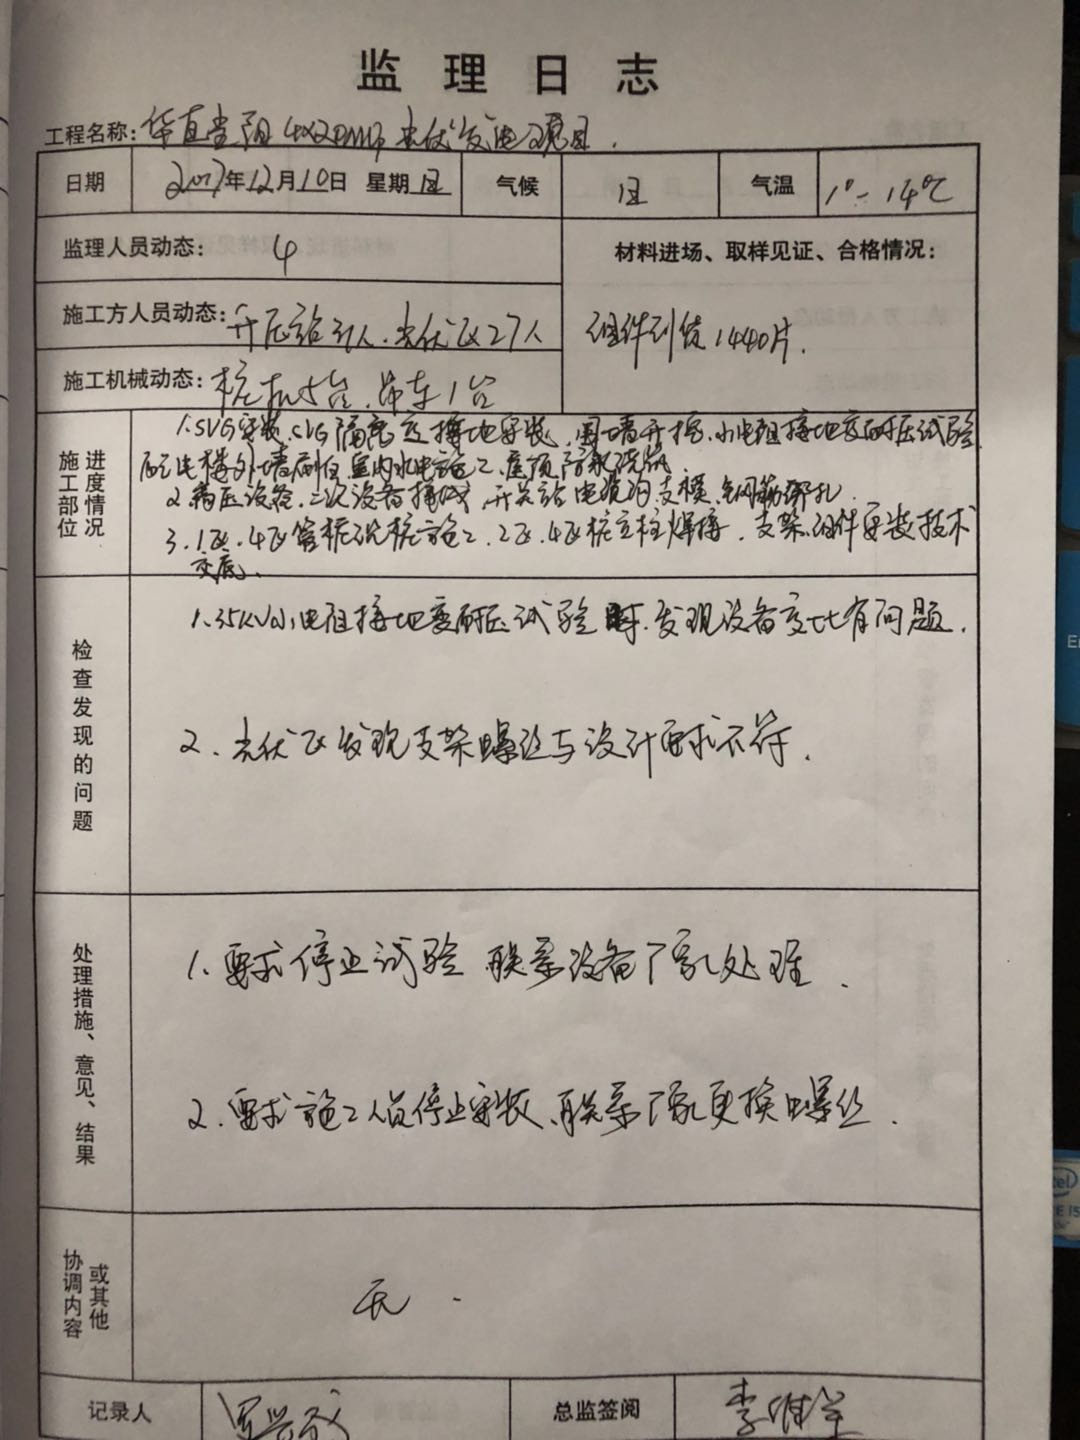 监理日志
工程名称: 华直 阳4x20MW 光伏发电项目.
日期 2017年12月10日 星期日 气候 阴 气温 1°-14℃
监理人员动态: 4 材料进场、取样见证、合格情况:
施工方人员动态: 升压站31人.光伏区27人
组件到货1440片.
施工机械动态: 桩机5台.吊车1台
进度情况
施工部位
1.SVG安装.SVG隔离变接地安装.围墙开挖.小电阻接地变耐压试验
配电楼外墙刷白 室内水电施工.屋顶防水
2.高压设备.二次设备接线 开关站电缆沟支模.钢筋绑扎.
3.1区.4区管桩 桩施工.2区.4区桩立柱焊接.支架.组件安装技术
交底.
检查发现的问题
1.35KV小电阻接地变耐压试验时.发现设备变比有问题.
2.光伏区发现支架螺丝与设计要求不符.
处理措施、意见、结果
1.要求停止试验 联系设备厂家处理.
2.要求施工人员停止安装.联系厂家更换螺丝.
或其他
协调内容
无.
记录人 总监签阅 李